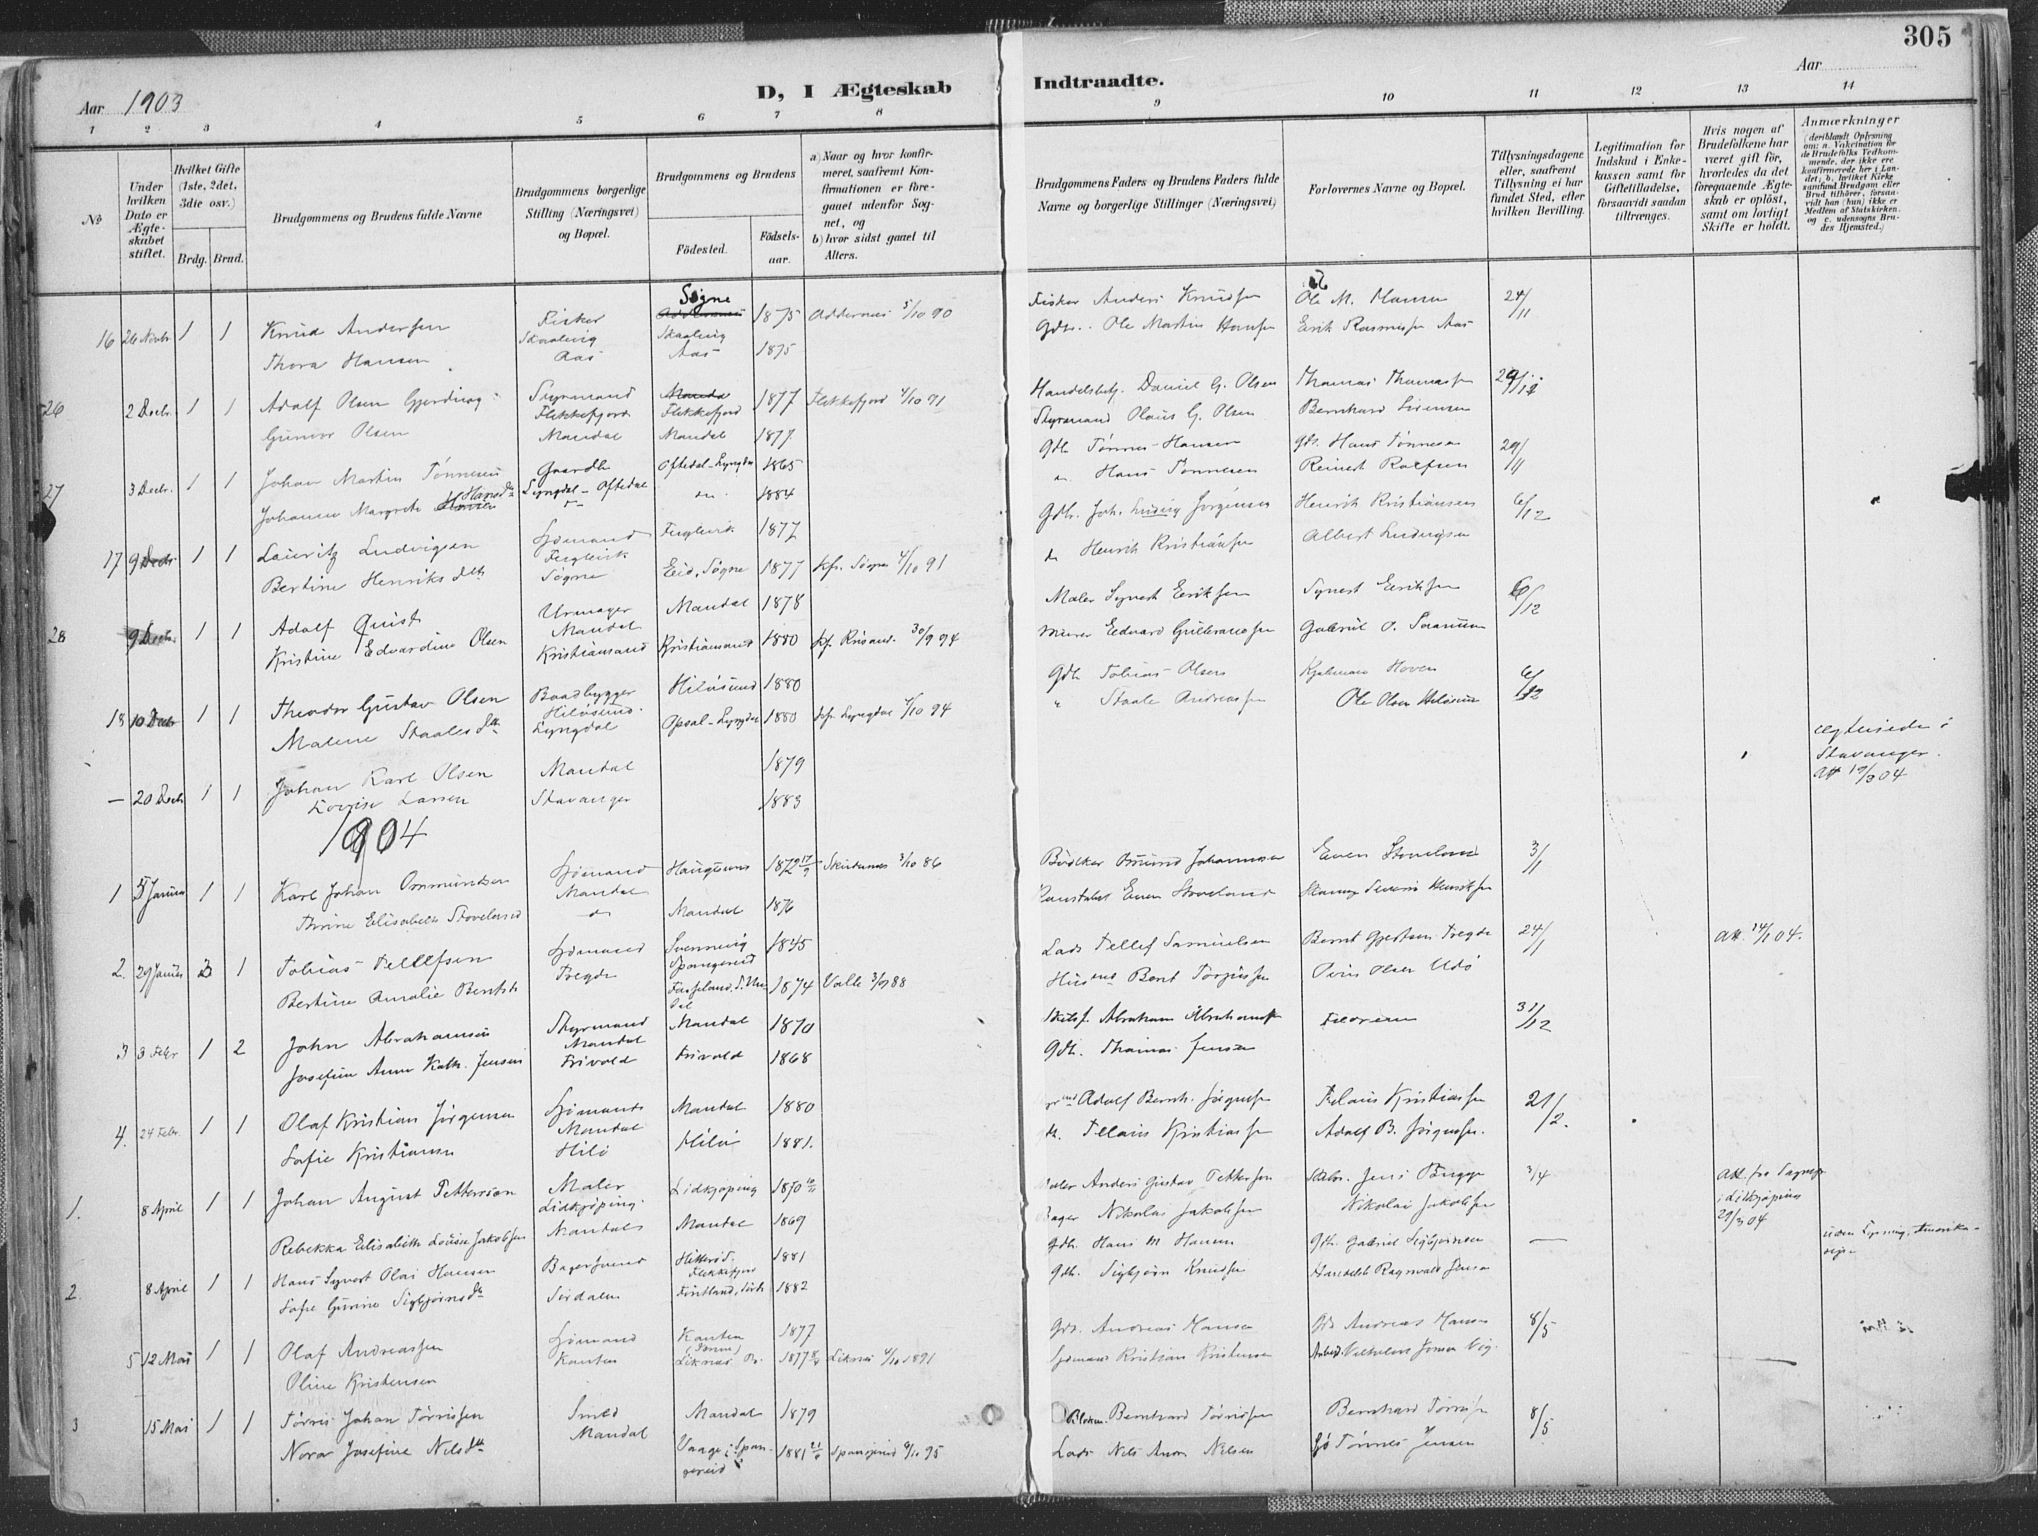 305
Aar 1903
D, I Ægteskab Indtraadte.
Aar
1 2 3 4 5 6 7 8 9 10 11 12 13 14
No
Under hvilken Dato er Ægteskabet stiftet.
Hvilket Gifte (1ste, 2det, 3die osv.)
Brdg. Brud.
Brudgommens og Brudens fulde Navne
Brudgommens borgerlige Stilling (Næringsvei) og Bopæl.
Brudgommens og Brudens
Födested. Födsels-aar.
a) Naar og hvor konfirmeret, saafremt Konfirmationen er foregaaet udenfor Sognet, og
b) hvor sidst gaaet til Alters.
Brudgommens Faders og Brudens Faders fulde Navne og borgerlige Stillinger (Næringsvei)
Forlovernes Navne og Bopæl.
Tillysningsdagene eller, saafremt Tillysning ei har fundet Sted, efter hvilken Bevilling.
Legitimation for Indskud i Enkekassen samt for Giftetilladelse, forsaavidt saadan tiltrænges.
Hvis nogen af Brudefolkene har været gift før, hvorledes da det foregaaende Ægteskab er oplöst, samt om lovligt Skifte er holdt.
Anmærkninger
(deriblandt Oplysning om: a. Vakcination for de Brudefolks Vedkommende, der ikke ere konfirmerede her i Landet; b. hvilket Kirkesamfund Brudgom eller Brud tilhörer, forsaavidt han (hun) ikke er Medlem af Statskirken, og c. udensogns Brudes Hjemsted.)
16 26 Novbr 1 1 Knud Andersen Fisker Skaaling Søgne Skaaling 1875 Oddernes 5/10 90 Fisker Anders Knudsen Ole M. Hansen 24/11
Thora Hansen Aas Aas 1875 Gdbr. Ole Martin Hansen Erik Rasmussen Aas
26 2 Decbr. 1 1 Adolf Olsen Gjerding Styrmand Flekkefjord Flekkefjord 1877 Flekkefjord 4/10 91 Handelsbetj. Daniel G. Olsen Thomas Thomassen
Gunvor Olsen Mandal Mandal 1877 Styrmand Olaus G. Olsen Bernhard Sørensen
27 3 Decbr. 1 1 Johan Martin Tönnesen Gaardb. Oftedal-Lyngdal 1865 Gdb. Tønnes Hansen Gdb. Hans Tønnesen 29/11
Johanne Margrete Hansdtr Lyngdal - Oftedal do. 1884 do. Hans Tønnesen Reinert Rolfsen
17 9 Decbr 1 1 Lauritz Ludvigsen Sjømand Fuglevik Fuglevik 1877 Gdb. Joh. Ludvig Jørgensen Henrik Kristiansen 6/12
Bertine Henriksdtr Søgne Eid, Søgne 1877 kfr. Søgne 4/10 91 do Henrik Kristiansen Albert Ludvigsen
28 9 Decbr. 1 1 Adolf Quist Urmager Mandal Mandal 1878 Maler Syvert Eriksen Syvert Eriksen 6/12
Kristine Edvardine Olsen Kristiansand Kristiansand 1880 kf. Krisand. 30/9 94 Murer Edvard Gulbrandsen Gabriel O.
18 10 Decbr 1 1 Theodor Gustav Olsen Baadbygger Hiløsund Hiløsund 1880 Gdb Tobias Olsen Hjalmar Hoven 6/12
Malene Staalesdtr Lyngdal Opsal-Lyngdal 1880 kfr. Lyngdal 7/10 94 " Staale Andreassen Ole Olsen Hiløsund
— 20 Decbr 1 1 Johan Karl Olsen Mandal 1879 Stavanger.
Lovise Larsen Stavanger 1883
1904
1 5 Januar 1 1 Karl Johan Ommundsen Sjømand Mandal Haugesund 1872 17/9 Skudesnæs 3/10 86 Bødker Ommund Johannessen Even Stoveland 3/1
Thrine Elisabeth Stoveland do Mandal 1876 Konstabel Even Stoveland Severin Henriksen
2. 29 Januar 3 1 Tobias Tellefsen Sjømand Tregde Svennevig Spangereid 1845 Lods Tellef Samuelsen Bernt Gjertsen Tregde 24/1 Att. 14/1 04.
Bertine Amalie Bentsdtr 1874 Valle 3/10 88 Husmd Bent Torjussen Olsen Udø
3 3 Febr 1 2 John Abrahamsen Styrmand Mandal Mandal 1870 Skibsf. Abraham Abrahamsen 31/12
Josefine Anne Kath. Jensen Frivold Frivold 1868 Gdb. Thomas Jensen
4. 24 Febr. 1 1 Olaf Kristian Jörgensen Sjømand Mandal Mandal 1880 Adolf Bernh. Jørgensen Kristiansen 21/2.
Sofie Kristiansen Hilø Hilø 1881. Kristiansen Adolf B. Jørgensen.
1. 8 April 1 1 Johan August Pettersson Maler Lidkjøping Lidkjøping 1870 Maler Anders Gustav Pettersen Jens Bugge 3/4 Att. fra Sognepr i Lidkjøping 29/3 04
Rebekka Elisabeth Lovise Jakobsen Mandal Mandal 1869 Bager Nikolai Jakobsen Nikolai Jakobsen
2. 8 April 1 1 Hans Syvert Olai Hansen Bagersvend Hitterø S. Flekkefjord 1881 Gdb. Hans M. Hansen Gdb. Gabriel Sigbjørnsen — uden Lysning, Amerikareise
Sofie Gurine Sigbjørnsdtr Sirdalen 1882 Gdb. Sigbjørn Knudsen Ragnvald Jensen
5 12 Mai 1 1 Olaf Andreassen Sjømand Kanten 1877 Gdb. Andreas Hansen Gdb Andreas Hansen 8/5
Oline Kristensen Liknes 1877 Liknes 4/10 1891 Sjømand Kristian Kristensen Arbeid. Vilhelm Jensen Vig.
3 15 Mai 1 1 Tørris Johan Tørrisen Smed Mandal Mandal 1879 Bernhard Tørrisen Bernhard Tørrisen 8/5
Nora Josefine Nilsdtr Vaage, Spangereid 1881 Spangereid 95 Lods Nils Andr. Nilsen Tønnes Jensen